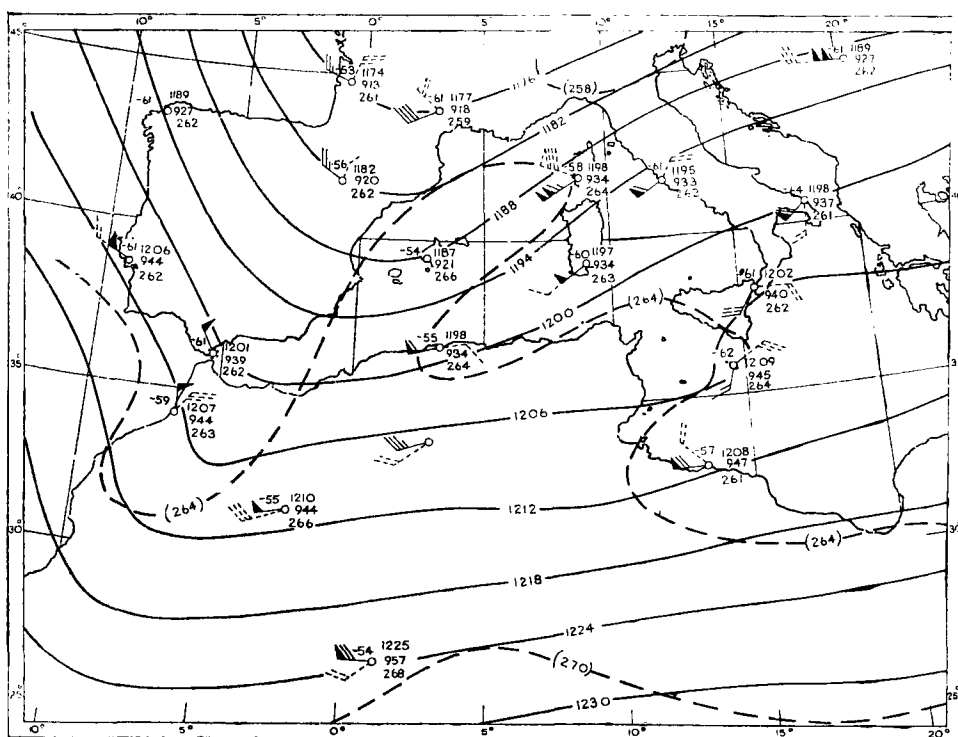 10° 5° 0° 5° 10° 15° 20°
45 45
-61 1189
927
262
-53 1174
913
261
-61 1177
918
259
1176
(258)
-61 1189
927
262
1182
-56 1182
920
262
-58 1198
934
264
-61 1195
933
262
-64 1198
937
261
40° 40°
1188
1194
-61 1206
944
262
-54 1187
921
266
-60 1197
934
263
-61 1202
940
262
1200
(264)
-61 1201
939
262
-55 1198
934
264
-62 1209
945
264
35° 35°
-59 1207
944
263
1206
-57 1208
947
261
(264)
-55 1210
944
266
1212
(264)
30° 30°
1218
1224
-54 1225
957
268
(270)
1230
25° 25°
10° 5° 0° 5° 10° 15° 20°